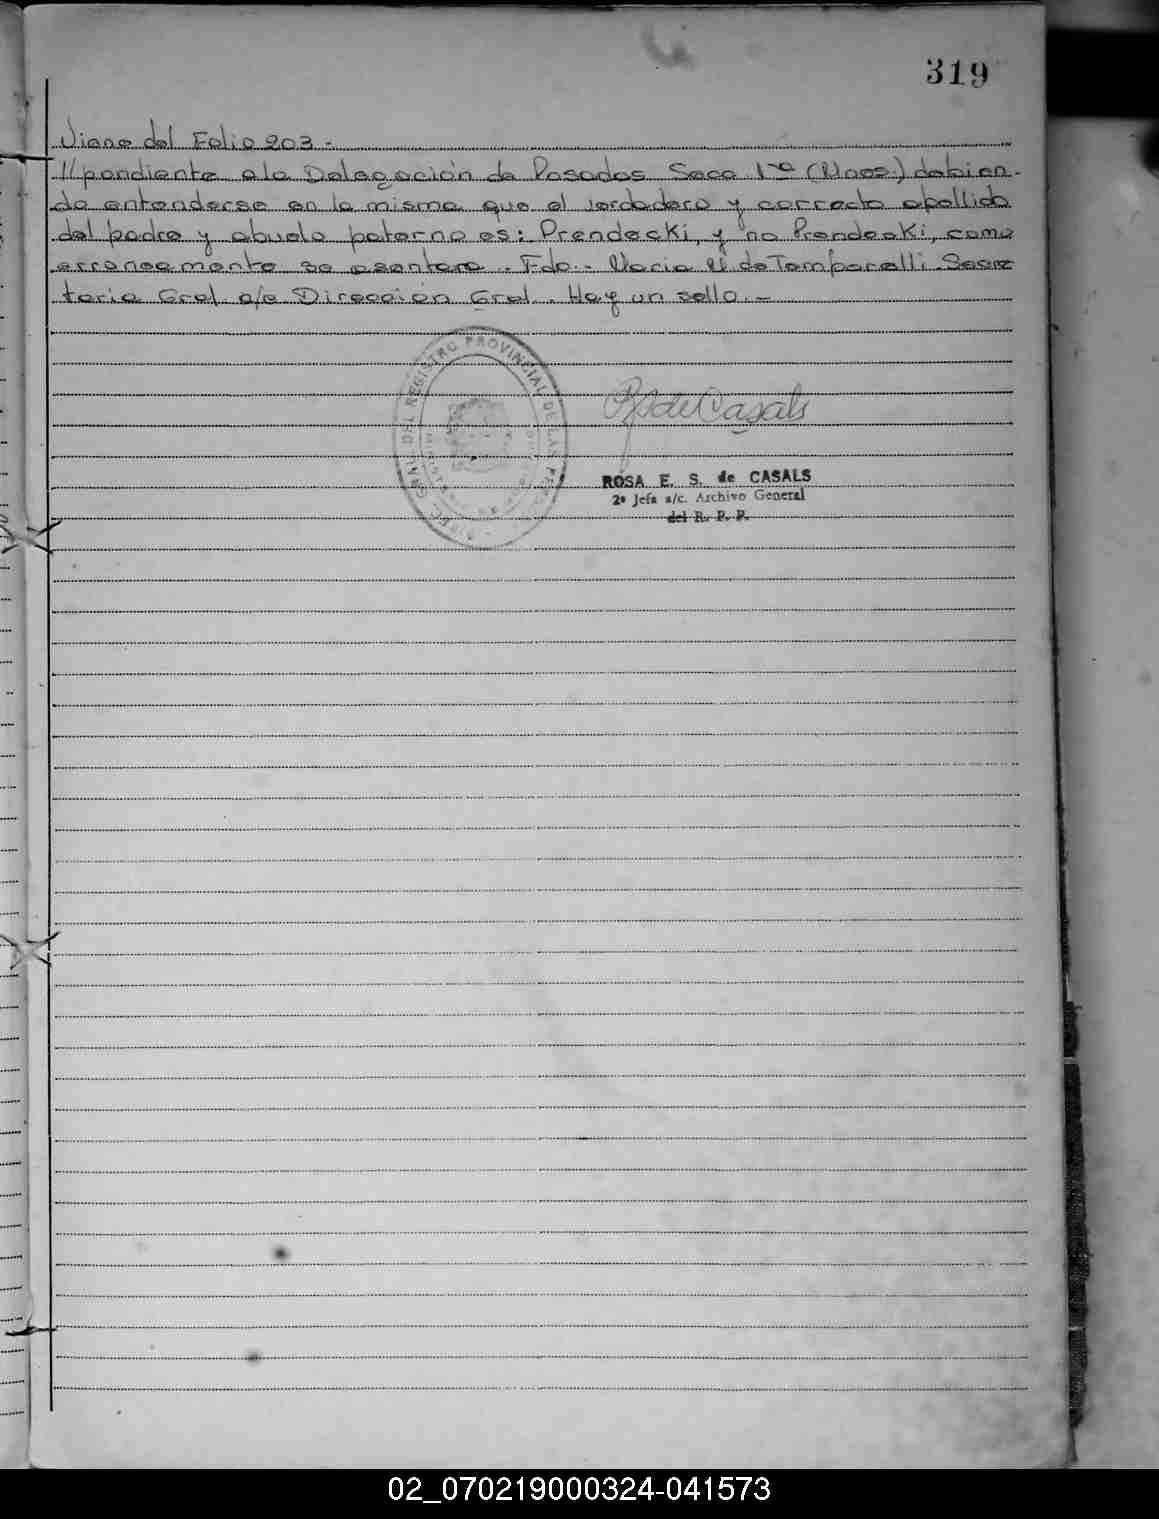 319
Viene del Folio 203.-
//pondiente a la Delegación de Posadas Secc 1ra (Mnes.) debien-
do entenderse en la misma que el verdadero y correcto apellido
del padre y abuelo paterno es: Prendecki, y no Prendeaki, como
erroneamente se asentara. Fdo.- Maria de Temporelli Secre
taria Gral a/c Dirección Gral. Hay un sello.-
GRAL. DEL REGISTRO PROVINCIAL DE LAS
de Casals
ROSA E. S. de CASALS
2ª Jefa a/c. Archivo General
del R. P. P.
02_070219000324-041573